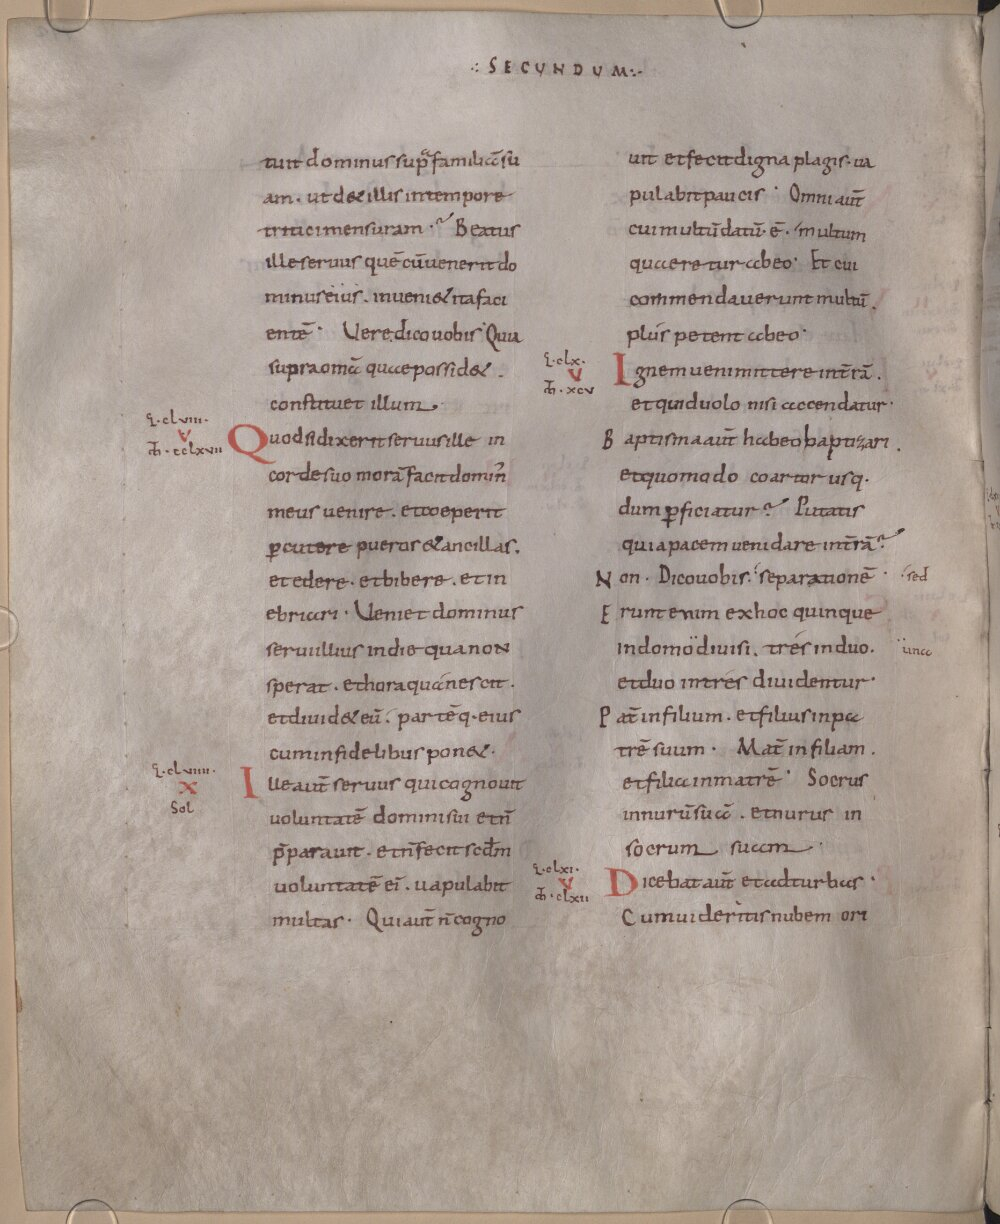 ∴ SECUNDUM ∴
tuit dominus sup̃ familiã su
am · ut d& illis in tempore
tritici mensuram · Beatus
ille servus quẽ cũ venerit do
minus eius · inveni& ita faci
entẽ · Vere dico vobis Quia
supra omĩa quae possid& ·
constituet illum ·
L · clviii ·
V
M̄t · cclxvii
Quod si dixerit servus ille in
corde suo morã facit domin̄
meus venire · et coeperit
ꝑcutere pueros & ancillas ·
et edere · et bibere · et in
ebriari · Veniet dominus
servi illius in die qua non
sperat · et hora qua nescit ·
et divid& eũ · partẽq · eius
cum infidelibus pon& ·
L · clviiii ·
X
Sol
Ille aut̃ servus qui cognovit
voluntatẽ domini sui et n̄
p̄paravit · et n̄ fecit scd̄m
voluntatẽ ei · vapulabit
multas · Qui aut̃ n̄ cogno
vit et fecit digna plagis · va
pulabit paucis · Omni aut̃
cui multũ datũ · ẽ · multum
quaeretur ab eo · Et cui
commendaverunt multũ ·
plus petent ab eo ·
L · clx ·
V
M̄t · xcv
Ignem veni mittere in t̃rã ·
et quid volo nisi accendatur ·
Baptisma aut̃ habeo baptizari ·
et quomodo coartor usq ·
dum ꝑficiatur · Putatis
quia pacem veni dare in t̃rã
Non · Dico vobis · separationẽ · sed
Erunt enim ex hoc quinque
in domo divisi · tres in duo · una
et duo in tres dividentur ·
Pat̃ in filium · et filius in pa
trẽ suum · Mat̃ in filiam ·
et filia in matrẽ · Socrus
in nurũ suã · et nurus in
socrum suam ·
L · clxi ·
V
M̄t · clxii
Dicebat aut̃ et ad turbas ·
Cum videritis nubem ori